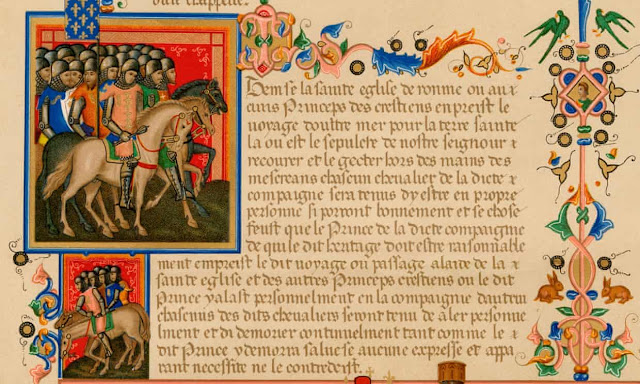 Item se la sainte eglise de romme ou au
Princeps des crestiens en preist le
voyage doultre mer pour la terre sainte
la ou est le sepulcre de nostre seignour
recourer et le gecter hors des mains des
mescreans chascun chevalier de la dicte
compaigne sera tenus dy estre en propre
personne si porront bonnement et se chose
feust que le Prince de la dicte compaigne
de qui le dit heritage doit estre raisonnable
ment empreist le dit voyage ou passage alaide de la
sainte eglise et des autres Princeps crestiens ou le dit
Prince yalast personnelment en la compaignie dautrui
chascuns des dits chevaliers seront tenu de aler personne
lment et di demorer continuelment tant comme le
dit Prince ydemorra salue se aucune expresse et appa
rant necessite ne le contredeist.